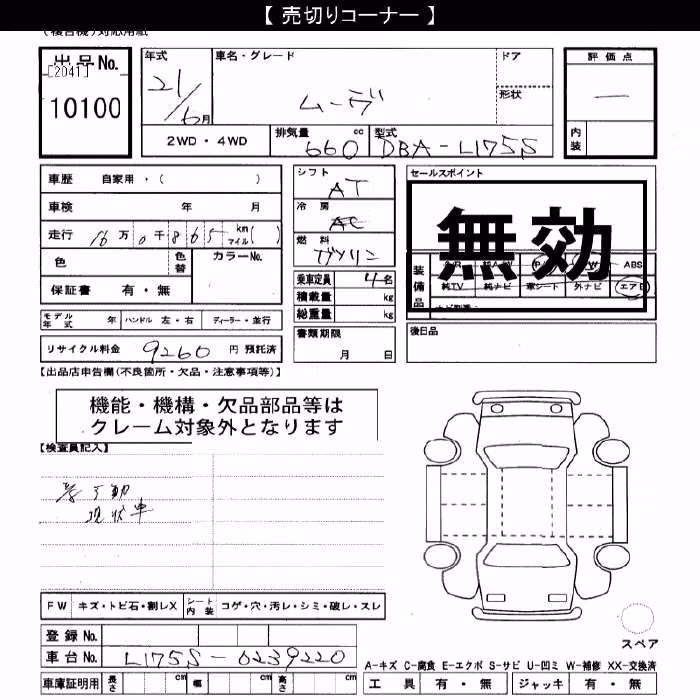 【 売切りコーナー 】
(複合機)対応用紙
出品No.
[2041]
10100
年式
21/6月
車名・グレード
ムーヴ
ドア
形状
評価点
内装
2WD・4WD
排気量 660 cc
型式 DBA-L175S
車歴 自家用・( )
車検 年 月
走行 16万0千865 km マイル( )
色
色替
カラーNo.
保証書 有・無
シフト AT
冷房 AC
燃料 ガソリン
乗車定員 4名
積載量 kg
総重量 kg
セールスポイント
無効
装備品
ABS
純TV 純ナビ 革シート 外ナビ エアB
モデル年式 年 ハンドル 左・右 ディーラー・並行
リサイクル料金 9260 円 預託済
書類期限
月 日
後日品
【出品店申告欄(不良箇所・欠品・注意事項等)】
機能・機構・欠品部品等は
クレーム対象外となります
【検査員記入】
不動
現状車
FW キズ・トビ石・割レX シート内装 コゲ・穴・汚レ・シミ・破レ・スレ
登録No.
車台No. L175S-0239220
スペア
A-キズ C-腐食 E-エクボ S-サビ U-凹ミ W-補修 XX-交換済
車庫証明用 長さ cm 幅 cm 高さ cm
工具 有・無 ジャッキ 有・無